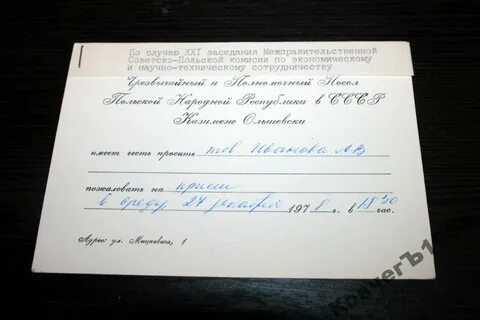 По случаю XXI заседания Межправительственной
Советско-Польской комисии по экономическому
и научно-техническому сотрудничеству
Чрезвычайный и Полномочный Посол
Польской Народной Республики в СССР
Казимеж Ольшевски
имеет честь просить тов Иванова А.В
пожаловать на прием
в среду 27 декабря 1978 г. в 18 30 час.
Адрес: ул. Мицкевича, 1